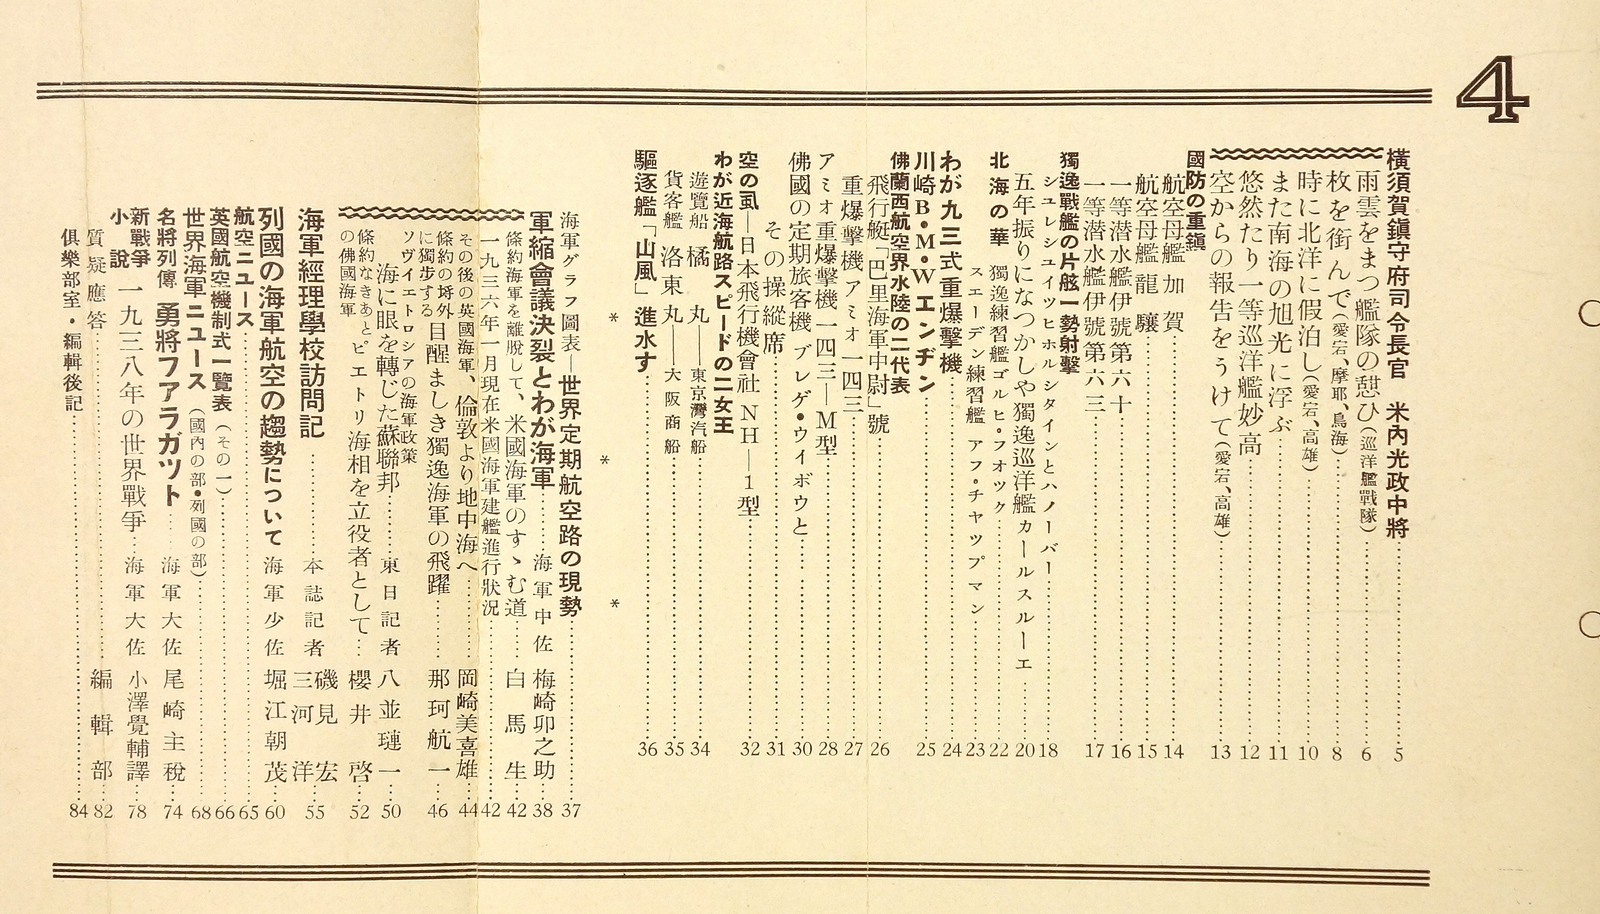 4
橫須賀鎭守府司令長官　米内光政中將 5
雨雲をまつ艦隊の憩ひ（巡洋艦戰隊） 6
枚を銜んで（愛宕、摩耶、鳥海） 8
時に北洋に假泊し（愛宕、高雄） 10
また南海の旭光に浮ぶ 11
悠然たり一等巡洋艦妙高 12
空からの報告をうけて（愛宕、高雄） 13
國防の重鎭
航空母艦 加賀 14
航空母艦 龍驤 15
一等潜水艦伊號第六十 16
一等潜水艦伊號第六三 17
獨逸戰艦の片舷一勢射擊
シユレシユイツヒホルシタインとハノーバー 18
五年振りになつかしや獨逸巡洋艦カールスルーエ 20
北海の華 獨逸練習艦ゴルヒ・フオツク 22
スエーデン練習艦 アフ・チヤツプマン 23
わが九三式重爆擊機 24
川崎B・M・Wエンヂン 25
佛蘭西航空界水陸の二代表
飛行艇「巴里海軍中尉」號 26
重爆擊機アミオ一四三 27
アミオ重爆擊機一四三―M型 28
佛國の定期旅客機 ブレゲ・ウイボウと 30
その操縱席 31
空の虱―日本飛行機會社NH―1型 32
わが近海航路スピードの二女王
遊覽船 橘丸――東京灣汽船 34
貨客艦 洛東丸――大阪商船 35
驅逐艦「山風」進水す 36
* * *
海軍グラフ圖表―世界定期航空路の現勢 37
軍縮會議決裂とわが海軍 海軍中佐 梅崎卯之助 38
條約海軍を離脫して、米國海軍のすゝむ道 白馬生 42
一九三六年一月現在米國海軍建艦進行狀況 42
その後の英國海軍、倫敦より地中海へ 岡崎美喜雄 44
條約の埒外に獨步する 目醒ましき獨逸海軍の飛躍 那珂航一 46
ソヴイエトロシアの海軍政策
海に眼を轉じた蘇聯邦 東日記者 八並璉一 50
條約なきあとの佛國海軍 ピエトリ海相を立役者として 櫻井啓 52
海軍經理學校訪問記 本誌記者 磯見宏 三河洋 55
列國の海軍航空の趨勢について 海軍少佐 堀江朝茂 60
航空ニユース 65
英國航空機制式一覽表（その一） 66
世界海軍ニユース（國内の部・列國の部） 68
名將列傳 勇將フアラガツト 海軍大佐 尾崎主稅 74
新戰爭小說 一九三八年の世界戰爭 海軍大佐 小澤覺輔譯 78
質疑應答 編輯部 82
俱樂部室・編輯後記 84